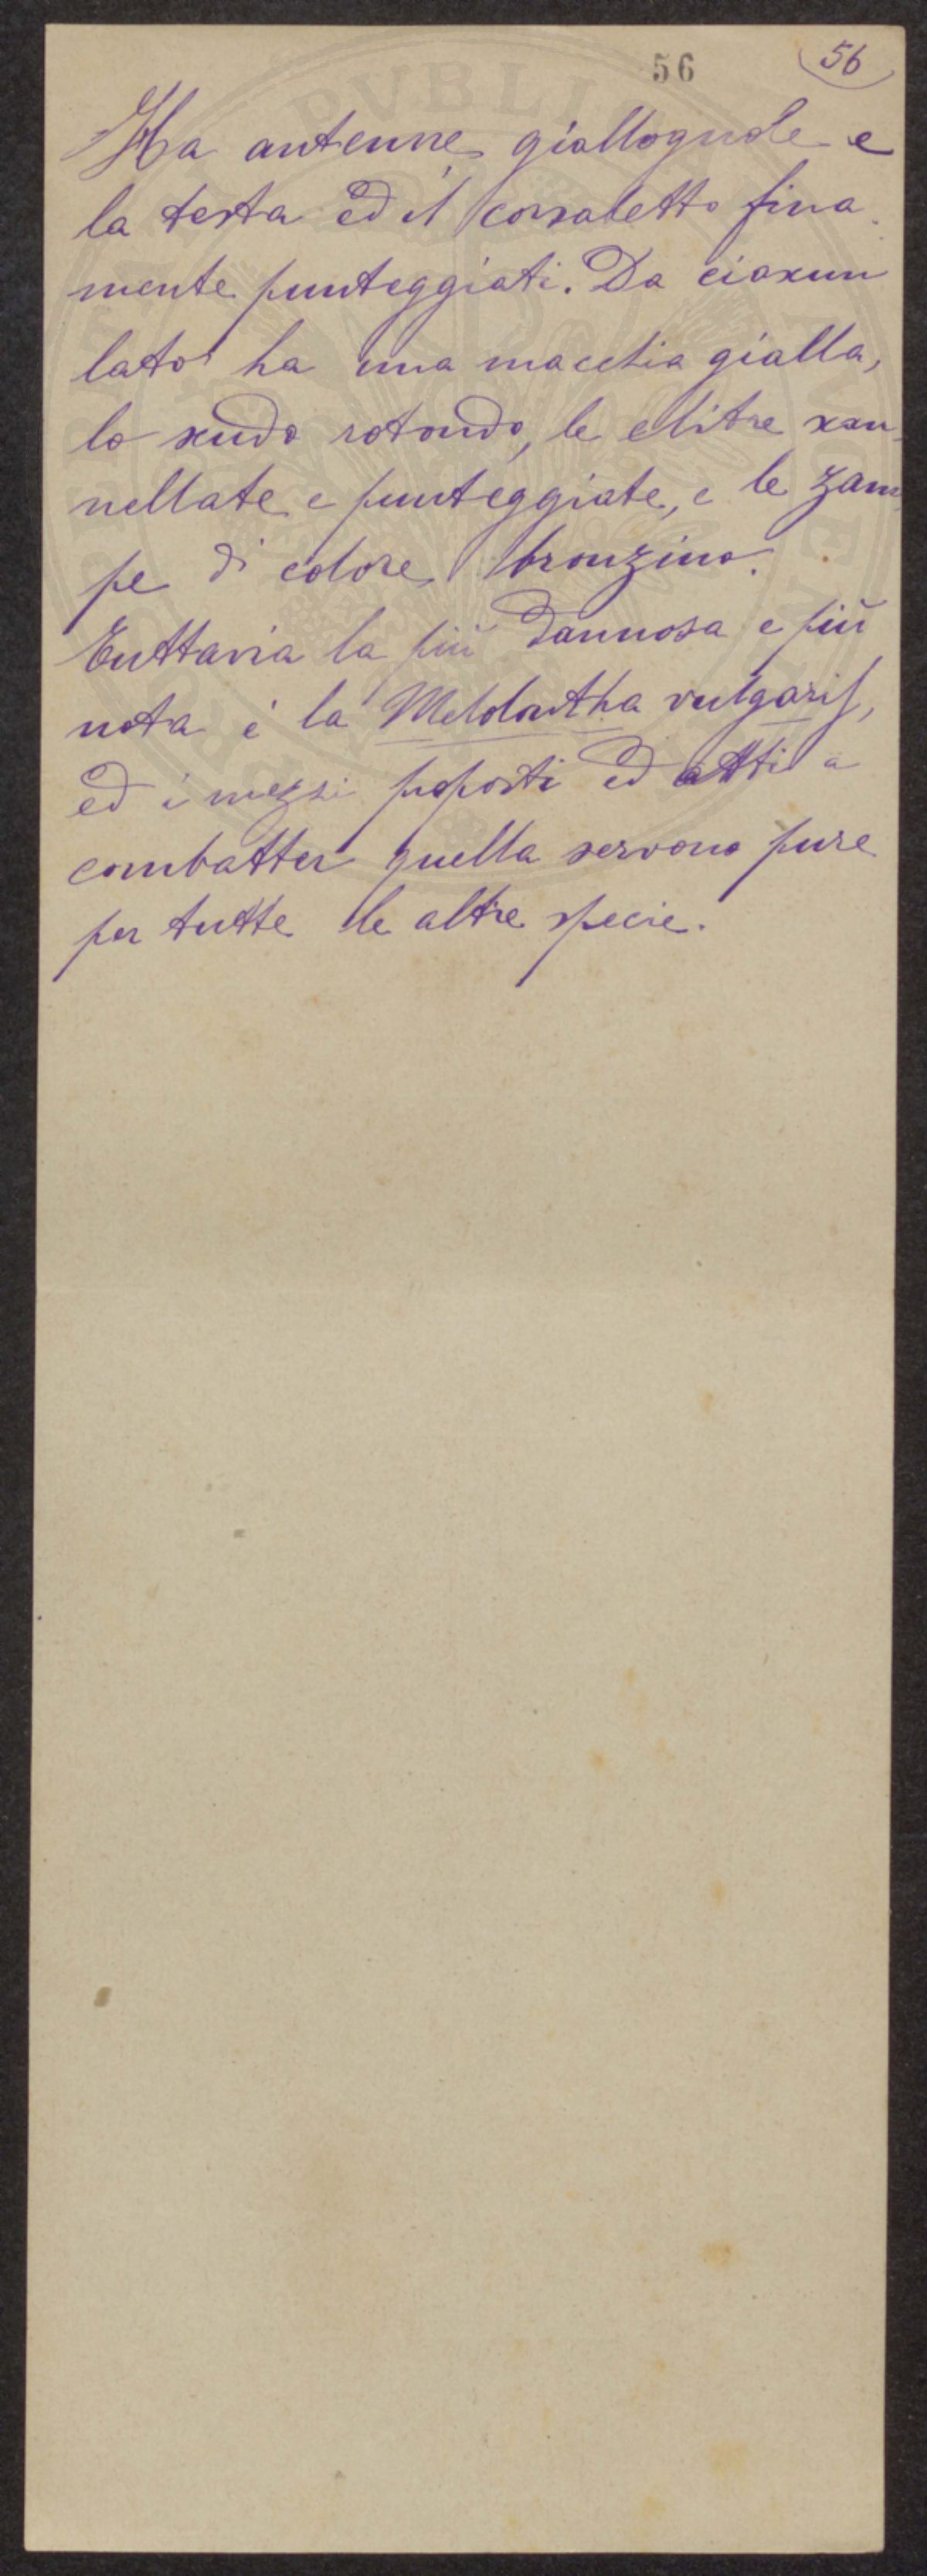 56 56
Ha antenne giallognole e
la testa ed il corsaletto fina-
mente punteggiati. Da ciascun
lato ha una macchia gialla,
lo scudo rotondo, le elitre scan-
nellate e punteggiate, e le zam-
pe di colore bronzino.
Tuttavia la più dannosa e più
nota è la Melolontha vulgaris,
ed i mezzi proposti ed atti a
combatter quella servono pure
per tutte le altre specie.